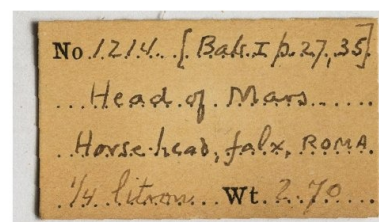 No 1214 [Bab. I p. 27, 35]
Head of Mars
Horse-head, falx, ROMA
1/4 litron Wt. 2.70